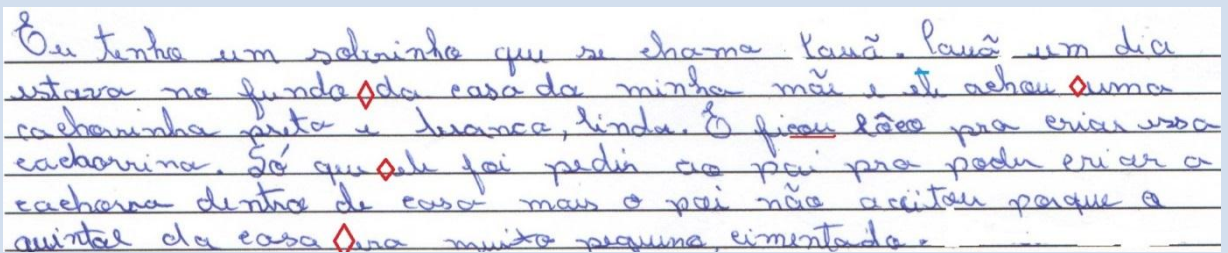 Eu tenho um sobrinho que se chama Kauã. Kauã um dia
estava no fundo da casa da minha mãe e ele achou uma
cachorrinha preta e branca, linda. E ficou lôco pra criar essa
cachorrina. Só que ele foi pedir ao pai pra poder criar a
cachorra dentro de casa mais o pai não aceitou porque o
quintal da casa era muito pequeno, cimentado.